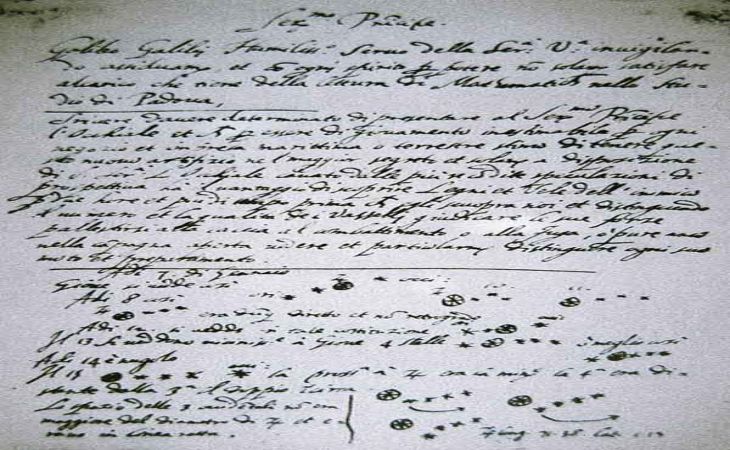 Ser.mo Principe.
Galileo Galilei Humiliss.o Servo della Ser.a V.a invigilan-
do assiduam.te, et con ogni spirito per potere non solam satisfare
alcarico che tiene della lettura di Mathematiche nello Stu-
dio di Padova,
Scrivere davere determinato di presentare al Ser.mo Principe
l'Occhiale et per essere di giovamento inestimabile per ogni
negotio et impresa marittima o terrestre stimo di tenere que-
sto nuovo artifizio nel maggior segreto et solam a dispositione
di S. Ser.a L'Occhiale cavato dalle più recondite speculazioni di
prospettiva ha il vantaggio di scoprire Legni et Vele dell'inimico
due hore et più di tempo prima che egli scuopra noi et distinguendo
il numero et la qualità de i Vasselli giudicare le sue forze
pallestirsi alla caccia al combattimento o alla fuga, o pure anco
nella campagna aperta vedere et particolarm distinguere ogni suo
moto et preparamento.
Adi 7. di Gennaio
Giove si vede così
Adi 8 così
era dunque diretto et non retrogrado
Adi 12. si vedde in tale costituzione
Il 13 si veddono minutiss.e à Giove 4 stelle
Adi 14 è nugolo
Il 15 la pross.a à ♃ era la min.e la 4.a era di-
stante dalla 3.a il doppio
Lo spatio delle 3 occidentali non era
maggiore del diametro di ♃ et e-
rano in linea retta.